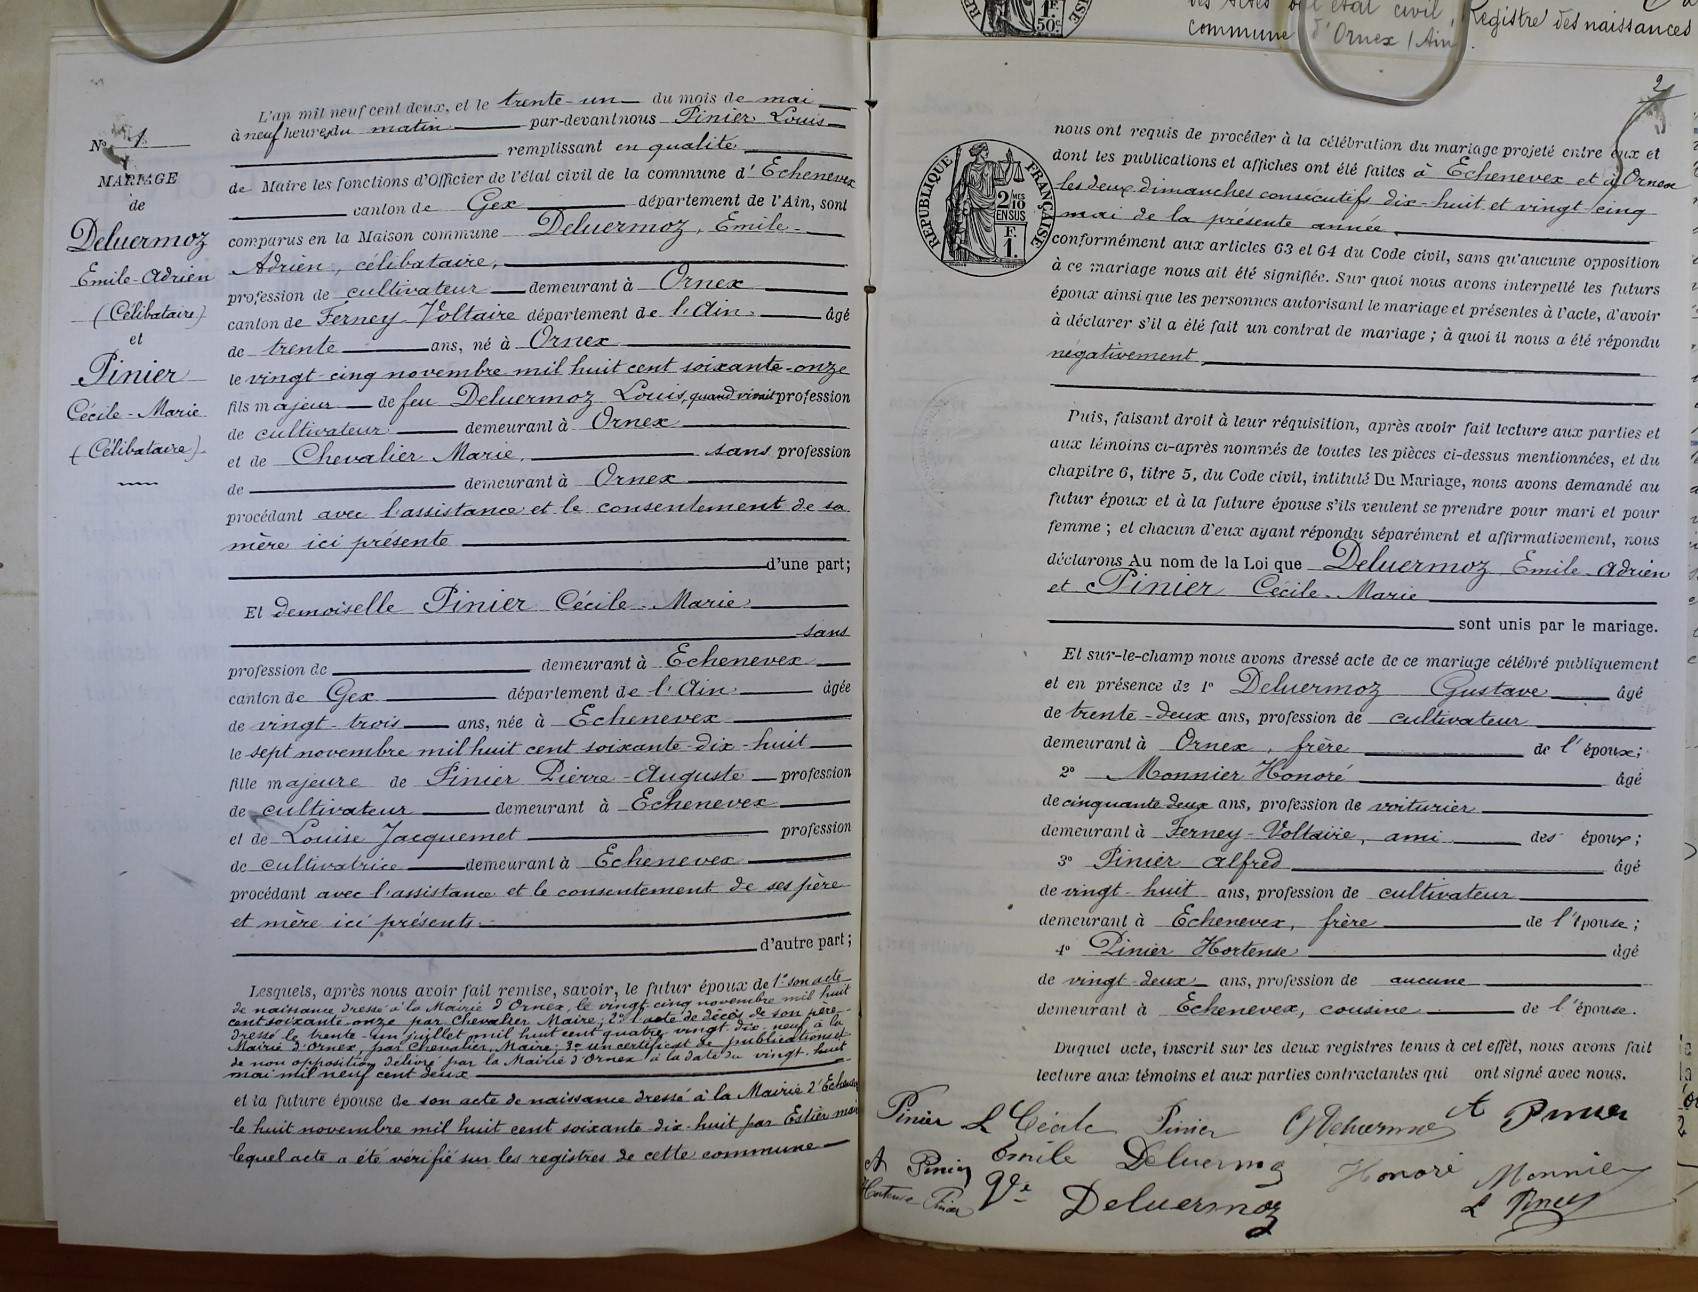 des actes de l'état civil, Registre des naissances
commune d'Ornex (Ain)
N° 1
MARIAGE
de
Deluermoz
Emile-Adrien
(Célibataire)
et
Pinier
Cécile-Marie
(Célibataire)
L'an mil neuf cent deux, et le trente-un du mois de mai
à neuf heures du matin par-devant nous Pinier Louis
remplissant en qualité
de Maire les fonctions d'Officier de l'état civil de la commune d'Echenevex
canton de Gex département de l'Ain, sont
comparus en la Maison commune Deluermoz, Emile-
Adrien, célibataire,
profession de cultivateur demeurant à Ornex
canton de Ferney-Voltaire département de l'Ain. âgé
de trente ans, né à Ornex
le vingt cinq novembre mil huit cent soixante-onze
fils majeur de feu Deluermoz Louis, quand vivait profession
de cultivateur demeurant à Ornex
et de Chevalier Marie, sans profession
de demeurant à Ornex
procédant avec l'assistance et le consentement de sa
mère ici présente
d'une part;
Et demoiselle Pinier Cécile-Marie
sans
profession de demeurant à Echenevex
canton de Gex département de l'Ain. âgée
de vingt-trois ans, née à Echenevex
le sept novembre mil huit cent soixante-dix-huit
fille majeure de Pinier Pierre-Auguste profession
de cultivateur demeurant à Echenevex
et de Louise Jacquemet profession
de cultivatrice demeurant à Echenevex
procédant avec l'assistance et le consentement de ses père
et mère ici présents.
d'autre part;
Lesquels, après nous avoir fait remise, savoir, le futur époux de 1° son acte
de naissance dressé à la Mairie d'Ornex, le vingt-cinq novembre mil huit
cent soixante onze par Chevalier Maire; 2° l'acte de décès de son père
dressé le trente-un juillet mil huit cent quatre vingt dix-neuf à la
Mairie d'Ornex, par Chevalier, Maire; 3° un certificat de publications et
de non opposition délivré par la Mairie d'Ornex à la date du vingt-huit
mai mil neuf cent deux
et la future épouse de son acte de naissance dressé à la Mairie d'Echenevex
le huit novembre mil huit cent soixante-dix-huit par Estier maire
lequel acte a été vérifié sur les registres de cette commune
2
RÉPUBLIQUE FRANÇAISE
2/10MES
EN SUS
1F.
nous ont requis de procéder à la célébration du mariage projeté entre eux et
dont les publications et affiches ont été faites à Echenevex et à Ornex
les deux dimanches consécutifs dix-huit et vingt-cinq
mai de la présente année,
conformément aux articles 63 et 64 du Code civil, sans qu'aucune opposition
à ce mariage nous ait été signifiée. Sur quoi nous avons interpellé les futurs
époux ainsi que les personnes autorisant le mariage et présentes à l'acte, d'avoir
à déclarer s'il a été fait un contrat de mariage; à quoi il nous a été répondu
négativement
Puis, faisant droit à leur réquisition, après avoir fait lecture aux parties et
aux témoins ci-après nommés de toutes les pièces ci-dessus mentionnées, et du
chapitre 6, titre 5, du Code civil, intitulé Du Mariage, nous avons demandé au
futur époux et à la future épouse s'ils veulent se prendre pour mari et pour
femme; et chacun d'eux ayant répondu séparément et affirmativement, nous
déclarons Au nom de la Loi que Deluermoz Emile-Adrien
et Pinier Cécile-Marie
sont unis par le mariage.
Et sur-le-champ nous avons dressé acte de ce mariage célébré publiquement
et en présence de 1° Deluermoz Gustave âgé
de trente-deux ans, profession de cultivateur
demeurant à Ornex, frère de l'époux;
2° Monnier Honoré âgé
de cinquante deux ans, profession de voiturier
demeurant à Ferney-Voltaire, ami des époux;
3° Pinier Alfred âgé
de vingt-huit ans, profession de cultivateur
demeurant à Echenevex, frère de l'épouse;
4° Pinier Hortense âgé
de vingt-deux ans, profession de aucune
demeurant à Echenevex, cousine de l'épouse.
Duquel acte, inscrit sur les deux registres tenus à cet effet, nous avons fait
lecture aux témoins et aux parties contractantes qui ont signé avec nous.
Pinier L Cécile Pinier G Deluermoz A Pinier
A Pinier Emile Deluermoz Honoré Monnier
Hortense Pinier Vve Deluermoz L Pinier